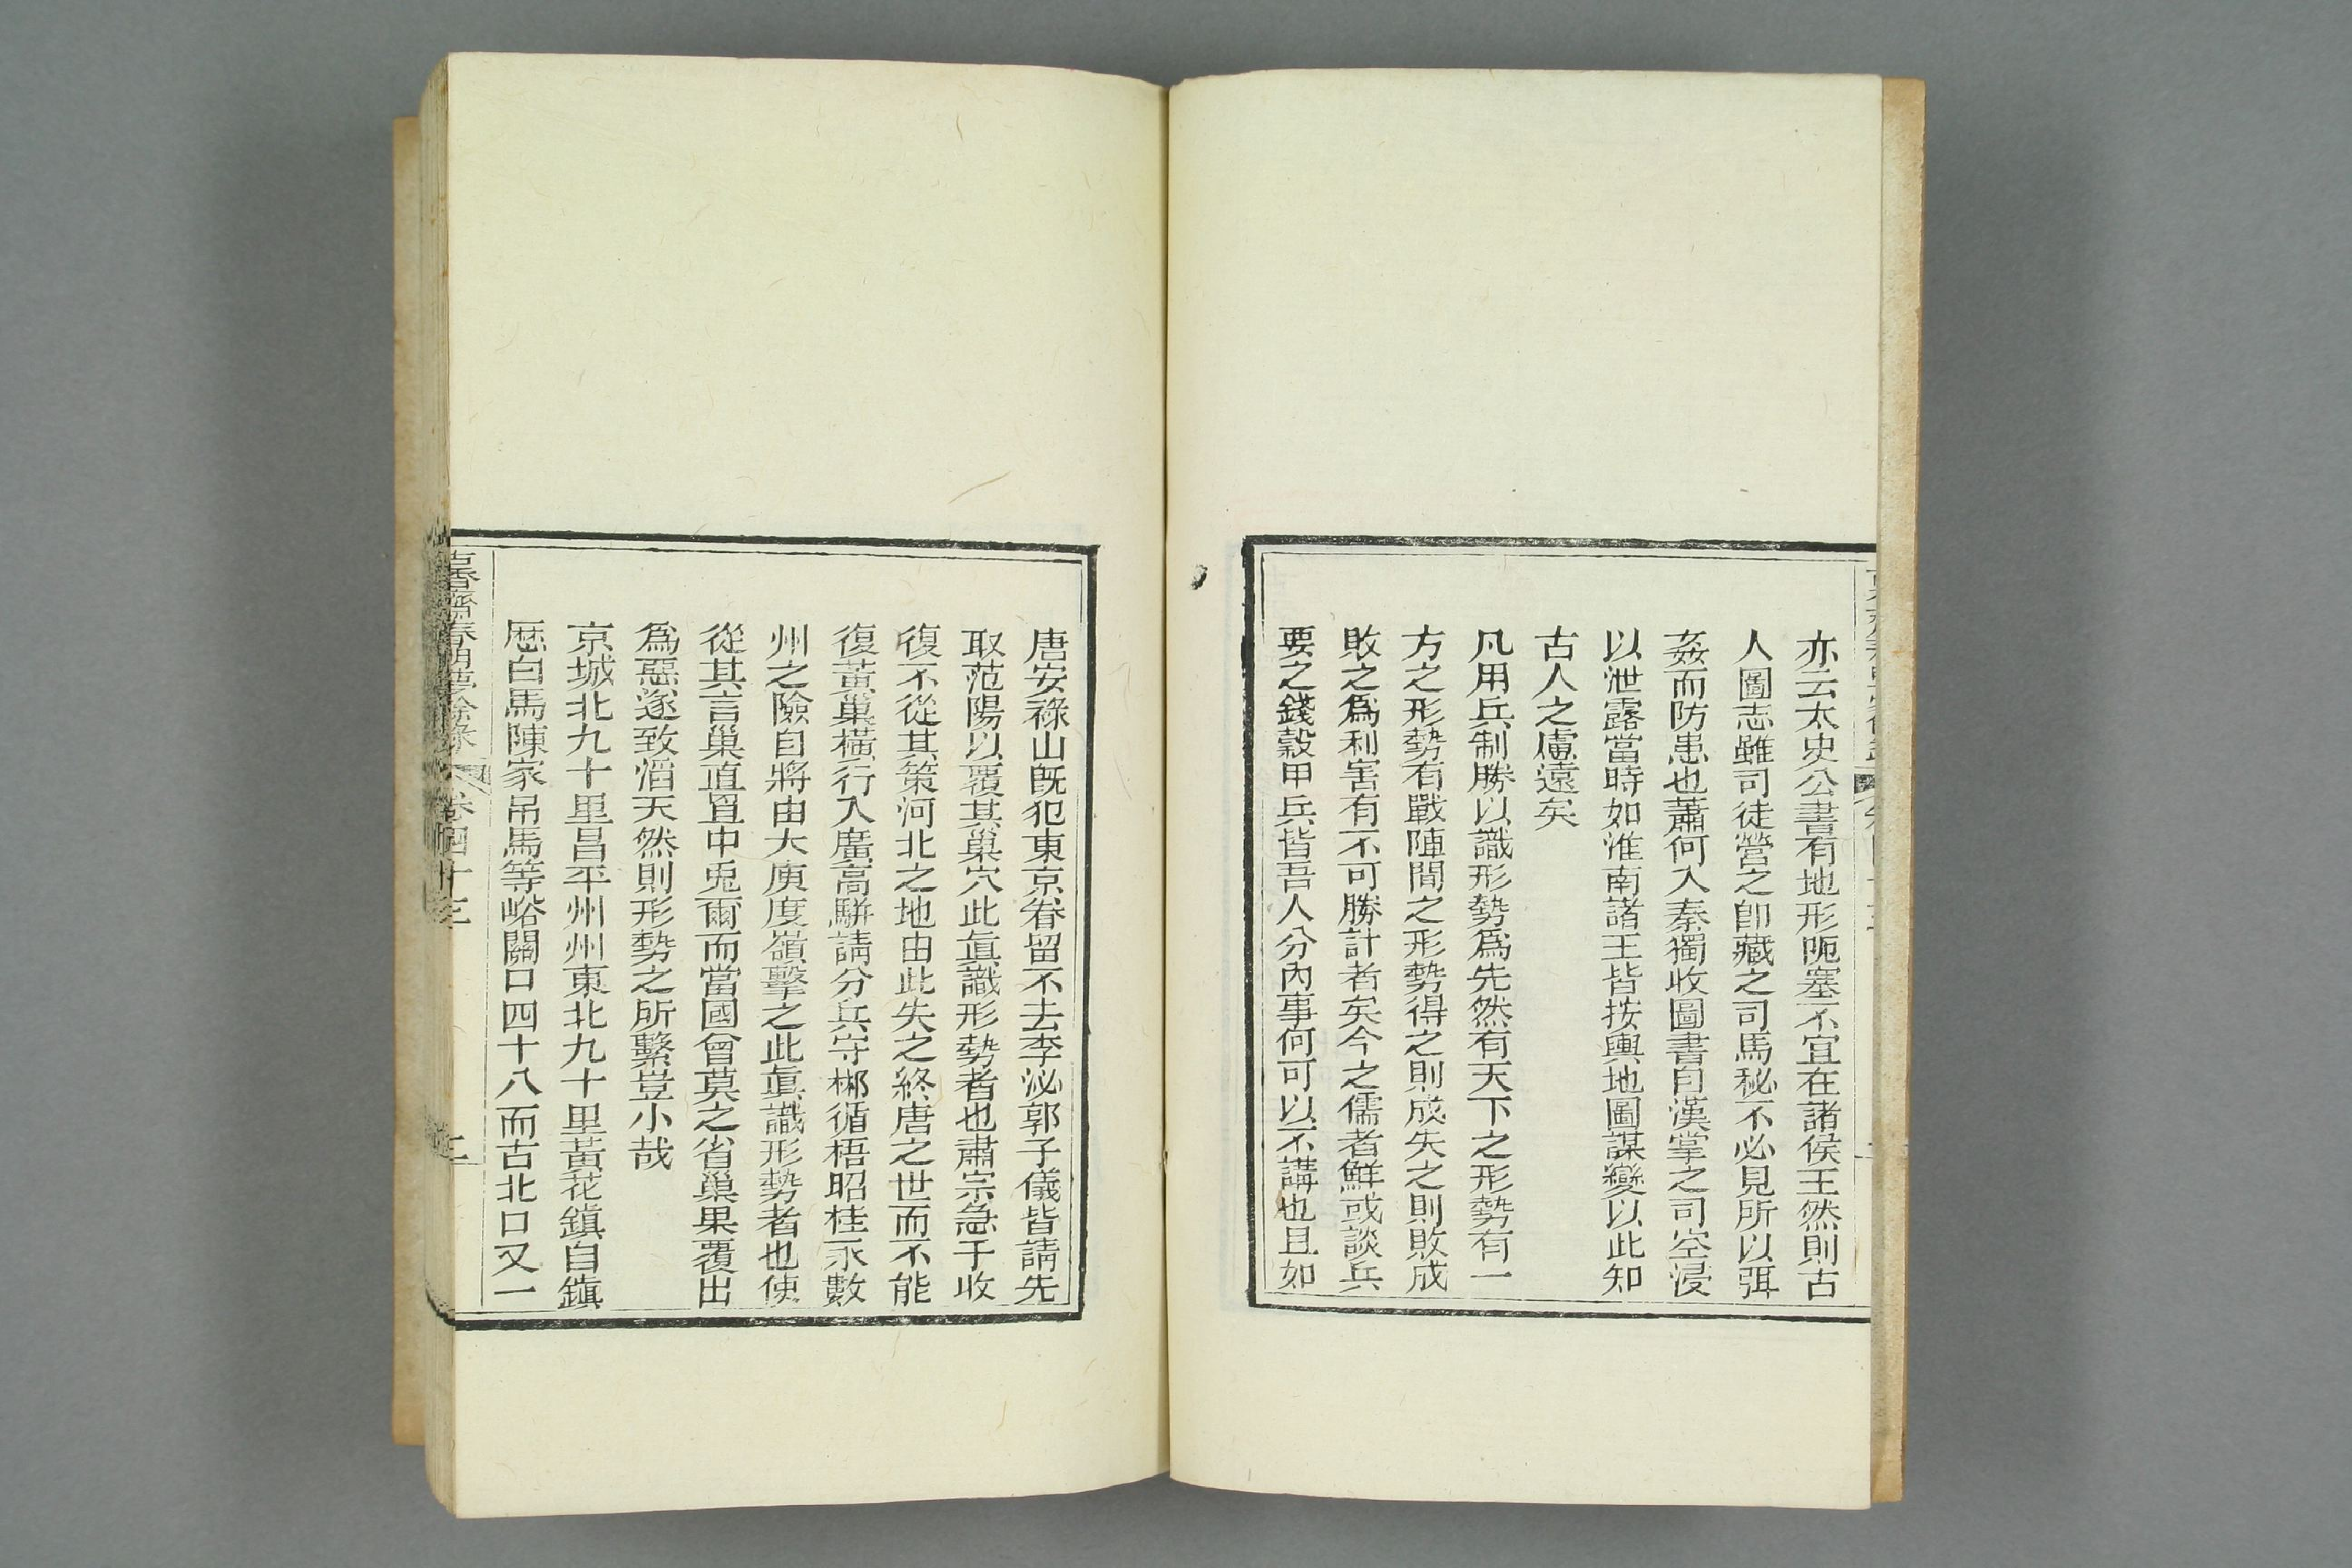 亦云太史公書有地形阨塞不宜在諸侯王然則古
人圖志雖司徒營之卽藏之司馬秘不必見所以弭
姦而防患也蕭何入秦獨收圖書自漢掌之司空浸
以泄露當時如淮南諸王皆按輿地圖謀變以此知
古人之慮遠矣
凡用兵制勝以識形勢爲先然有天下之形勢有一
方之形勢有戰陣間之形勢得之則成失之則敗成
敗之爲利害有不可勝計者矣今之儒者鮮或談兵
要之錢穀甲兵皆吾人分內事何可以不講也且如
唐安祿山旣犯東京眷留不去李泌郭子儀皆請先
取范陽以覆其巢穴此眞識形勢者也肅宗急于收
復不從其策河北之地由此失之終唐之世而不能
復黃巢橫行入廣高駢請分兵守郴循梧昭桂永數
州之險自將由大庾度嶺擊之此眞識形勢者也使
從其言巢直罝中兎爾而當國曾莫之省巢果覆出
爲惡遂致滔天然則形勢之所繫豈小哉
京城北九十里昌平州州東北九十里黃花鎭自鎭
歷白馬陳家吊馬等峪關口四十八而古北口又一
古香齋春明夢餘錄 卷四十三 二